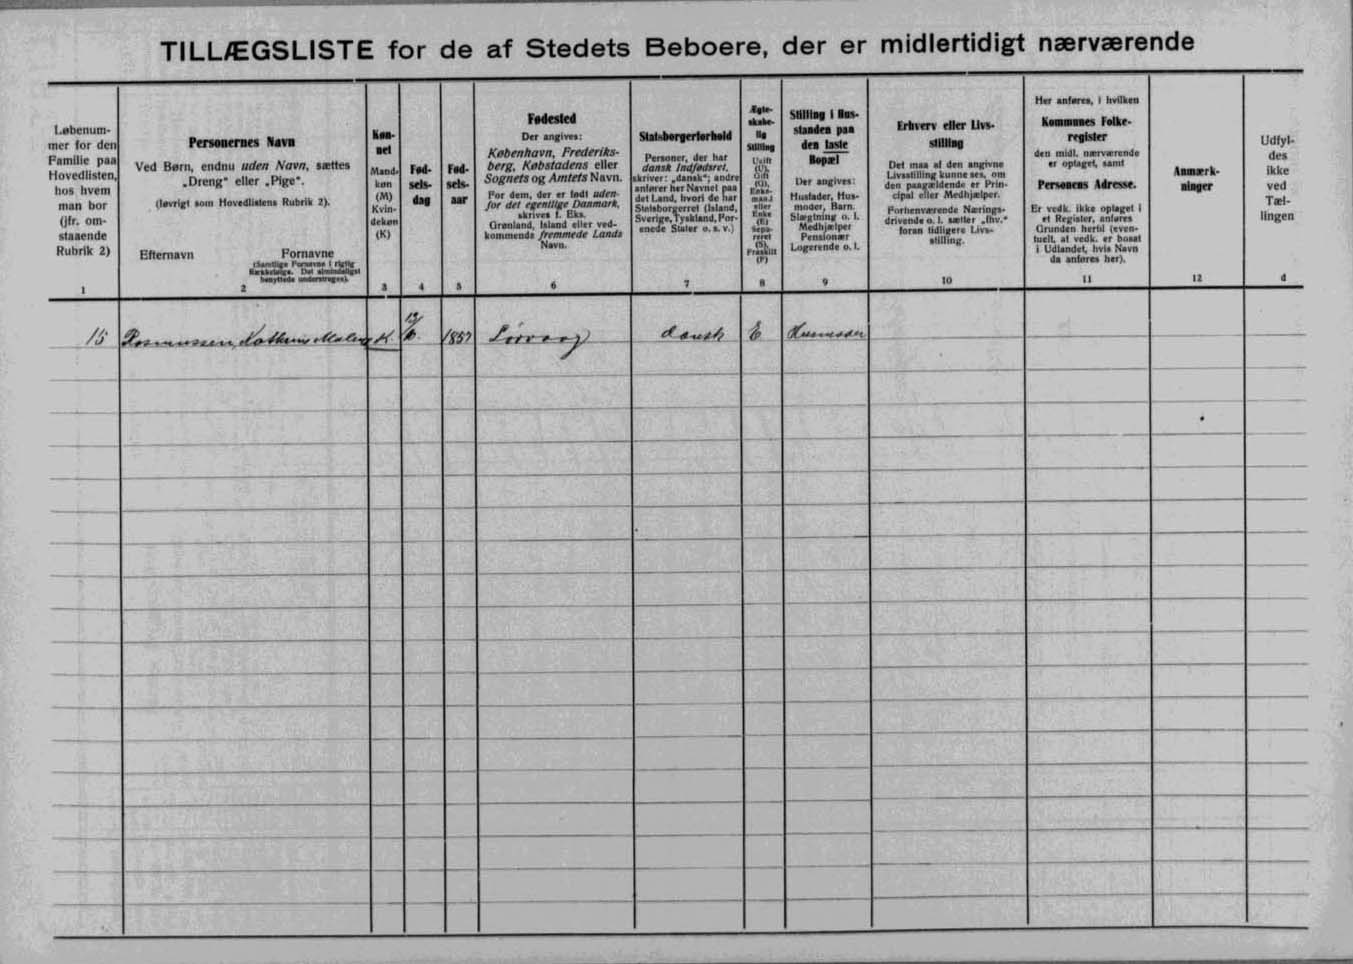 TILLÆGSLISTE for de af Stedets Beboere, der er midlertidigt nærværende
Løbenum-
mer for den
Familie paa
Hovedlisten,
hos hvem
man bor
(jfr. om-
staaende
Rubrik 2)
1
Personernes Navn
Ved Børn, endnu uden Navn, sættes
„Dreng" eller „Pige".
(Iøvrigt som Hovedlistens Rubrik 2).
Efternavn
Fornavne
(Samtlige Fornavne i rigtig
Rækkefølge. Det almindeligst
benyttede understreges).
2
Køn-
net
Mand-
køn
(M)
Kvin-
dekøn
(K)
3
Fød-
sels-
dag
4
Fød-
sels-
aar
5
Fødested
Der angives:
København, Frederiks-
berg, Købstadens eller
Sognets og Amtets Navn.
For dem, der er født uden-
for det egentlige Danmark,
skrives f. Eks.
Grønland, Island eller ved-
kommends fremmede Lands
Navn.
6
Statsborgerforhold
Personer, der har
dansk Indfødsret,
skriver: „dansk"; andre
anfører her Navnet paa
det Land, hvori de har
Statsborgerret (Island,
Sverige, Tyskland, For-
enede Stater o. s. v.)
7
Ægte-
skabe-
lig
Stilling
Ugift
(U),
Gift
(G),
Enke-
mand
eller
Enke
(E)
Sepa-
reret
(S),
Fraskilt
(F)
8
Stilling i Hus-
standen paa
den faste
Bopæl
Der angives:
Husfader, Hus-
moder, Barn.
Slægtning o. l.
Medhjælper
Pensionær
Logerende o. l.
9
Erhverv eller Livs-
stilling
Det maa af den angivne
Livsstilling kunne ses, om
den paagældende er Prin-
cipal eller Medhjælper.
Forhenværende Nærings-
drivende o. l. sætter „fhv."
foran tidligere Livs-
stilling.
10
Her anføres, i hvilken
Kommunes Folke-
register
den midl. nærværende
er optaget, samt
Personens Adresse.
Er vedk. ikke optaget i
et Register, anføres
Grunden hertil (even-
tuelt, at vedk. er bosat
i Udlandet, hvis Navn
da anføres her).
11
Anmærk-
ninger
12
Udfyl-
des
ikke
ved
Tæl-
lingen
d
15 Rasmussen, Kathrine Malene K. 12/6. 1857 Sørvaag dansk E Husmoder